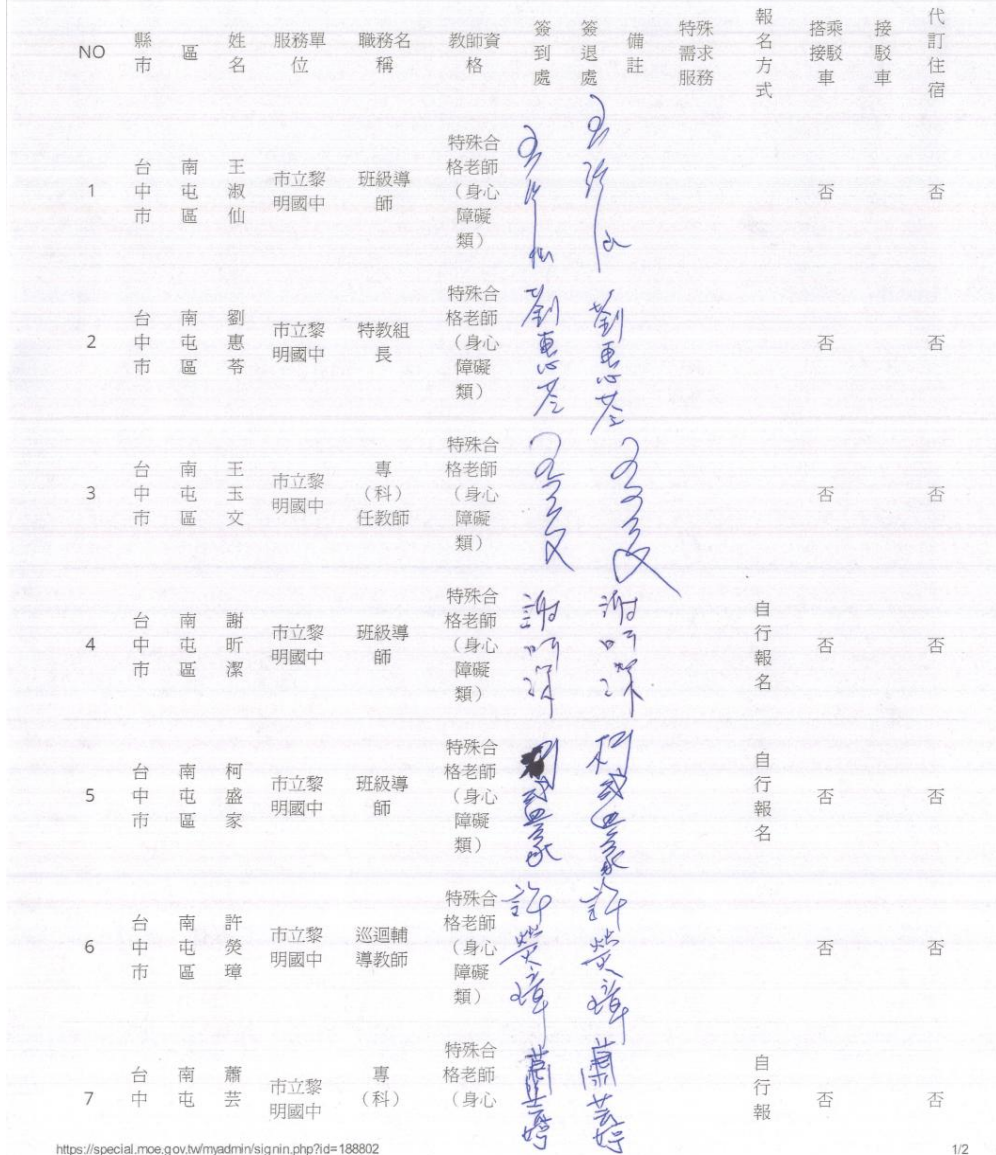 NO 縣市 區 姓名 服務單位 職務名稱 教師資格 簽到處 簽退處 備註 特殊需求服務 報名方式 搭乘接駁車 接駁車 代訂住宿
1 台中市 南屯區 王淑仙 市立黎明國中 班級導師 特殊合格老師（身心障礙類） 王淑仙 王淑仙 否 否
2 台中市 南屯區 劉惠苓 市立黎明國中 特教組長 特殊合格老師（身心障礙類） 劉惠苓 劉惠苓 否 否
3 台中市 南屯區 王玉文 市立黎明國中 專（科）任教師 特殊合格老師（身心障礙類） 王玉文 王玉文 否 否
4 台中市 南屯區 謝昕潔 市立黎明國中 班級導師 特殊合格老師（身心障礙類） 謝昕潔 謝昕潔 自行報名 否 否
5 台中市 南屯區 柯盛家 市立黎明國中 班級導師 特殊合格老師（身心障礙類） 柯盛家 柯盛家 自行報名 否 否
6 台中市 南屯區 許熒璋 市立黎明國中 巡迴輔導教師 特殊合格老師（身心障礙類） 許熒璋 許熒璋 否 否
7 台中 南屯 蕭芸 市立黎明國中 專（科） 特殊合格老師（身心 蕭芸婷 蕭芸婷 自行報 否 否
https://special.moe.gov.tw/myadmin/signin.php?id=188802 1/2